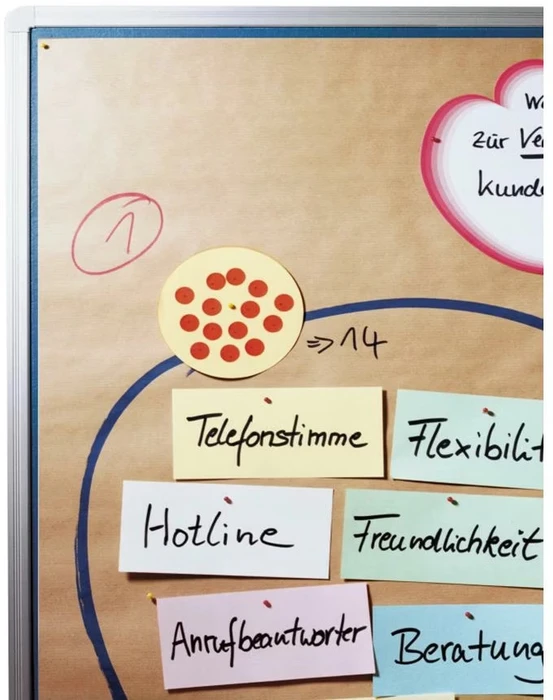 zur
1
⇒ 14
Telefonstimme
Hotline
Freundlichkeit
Anrufbeantworter
Beratung